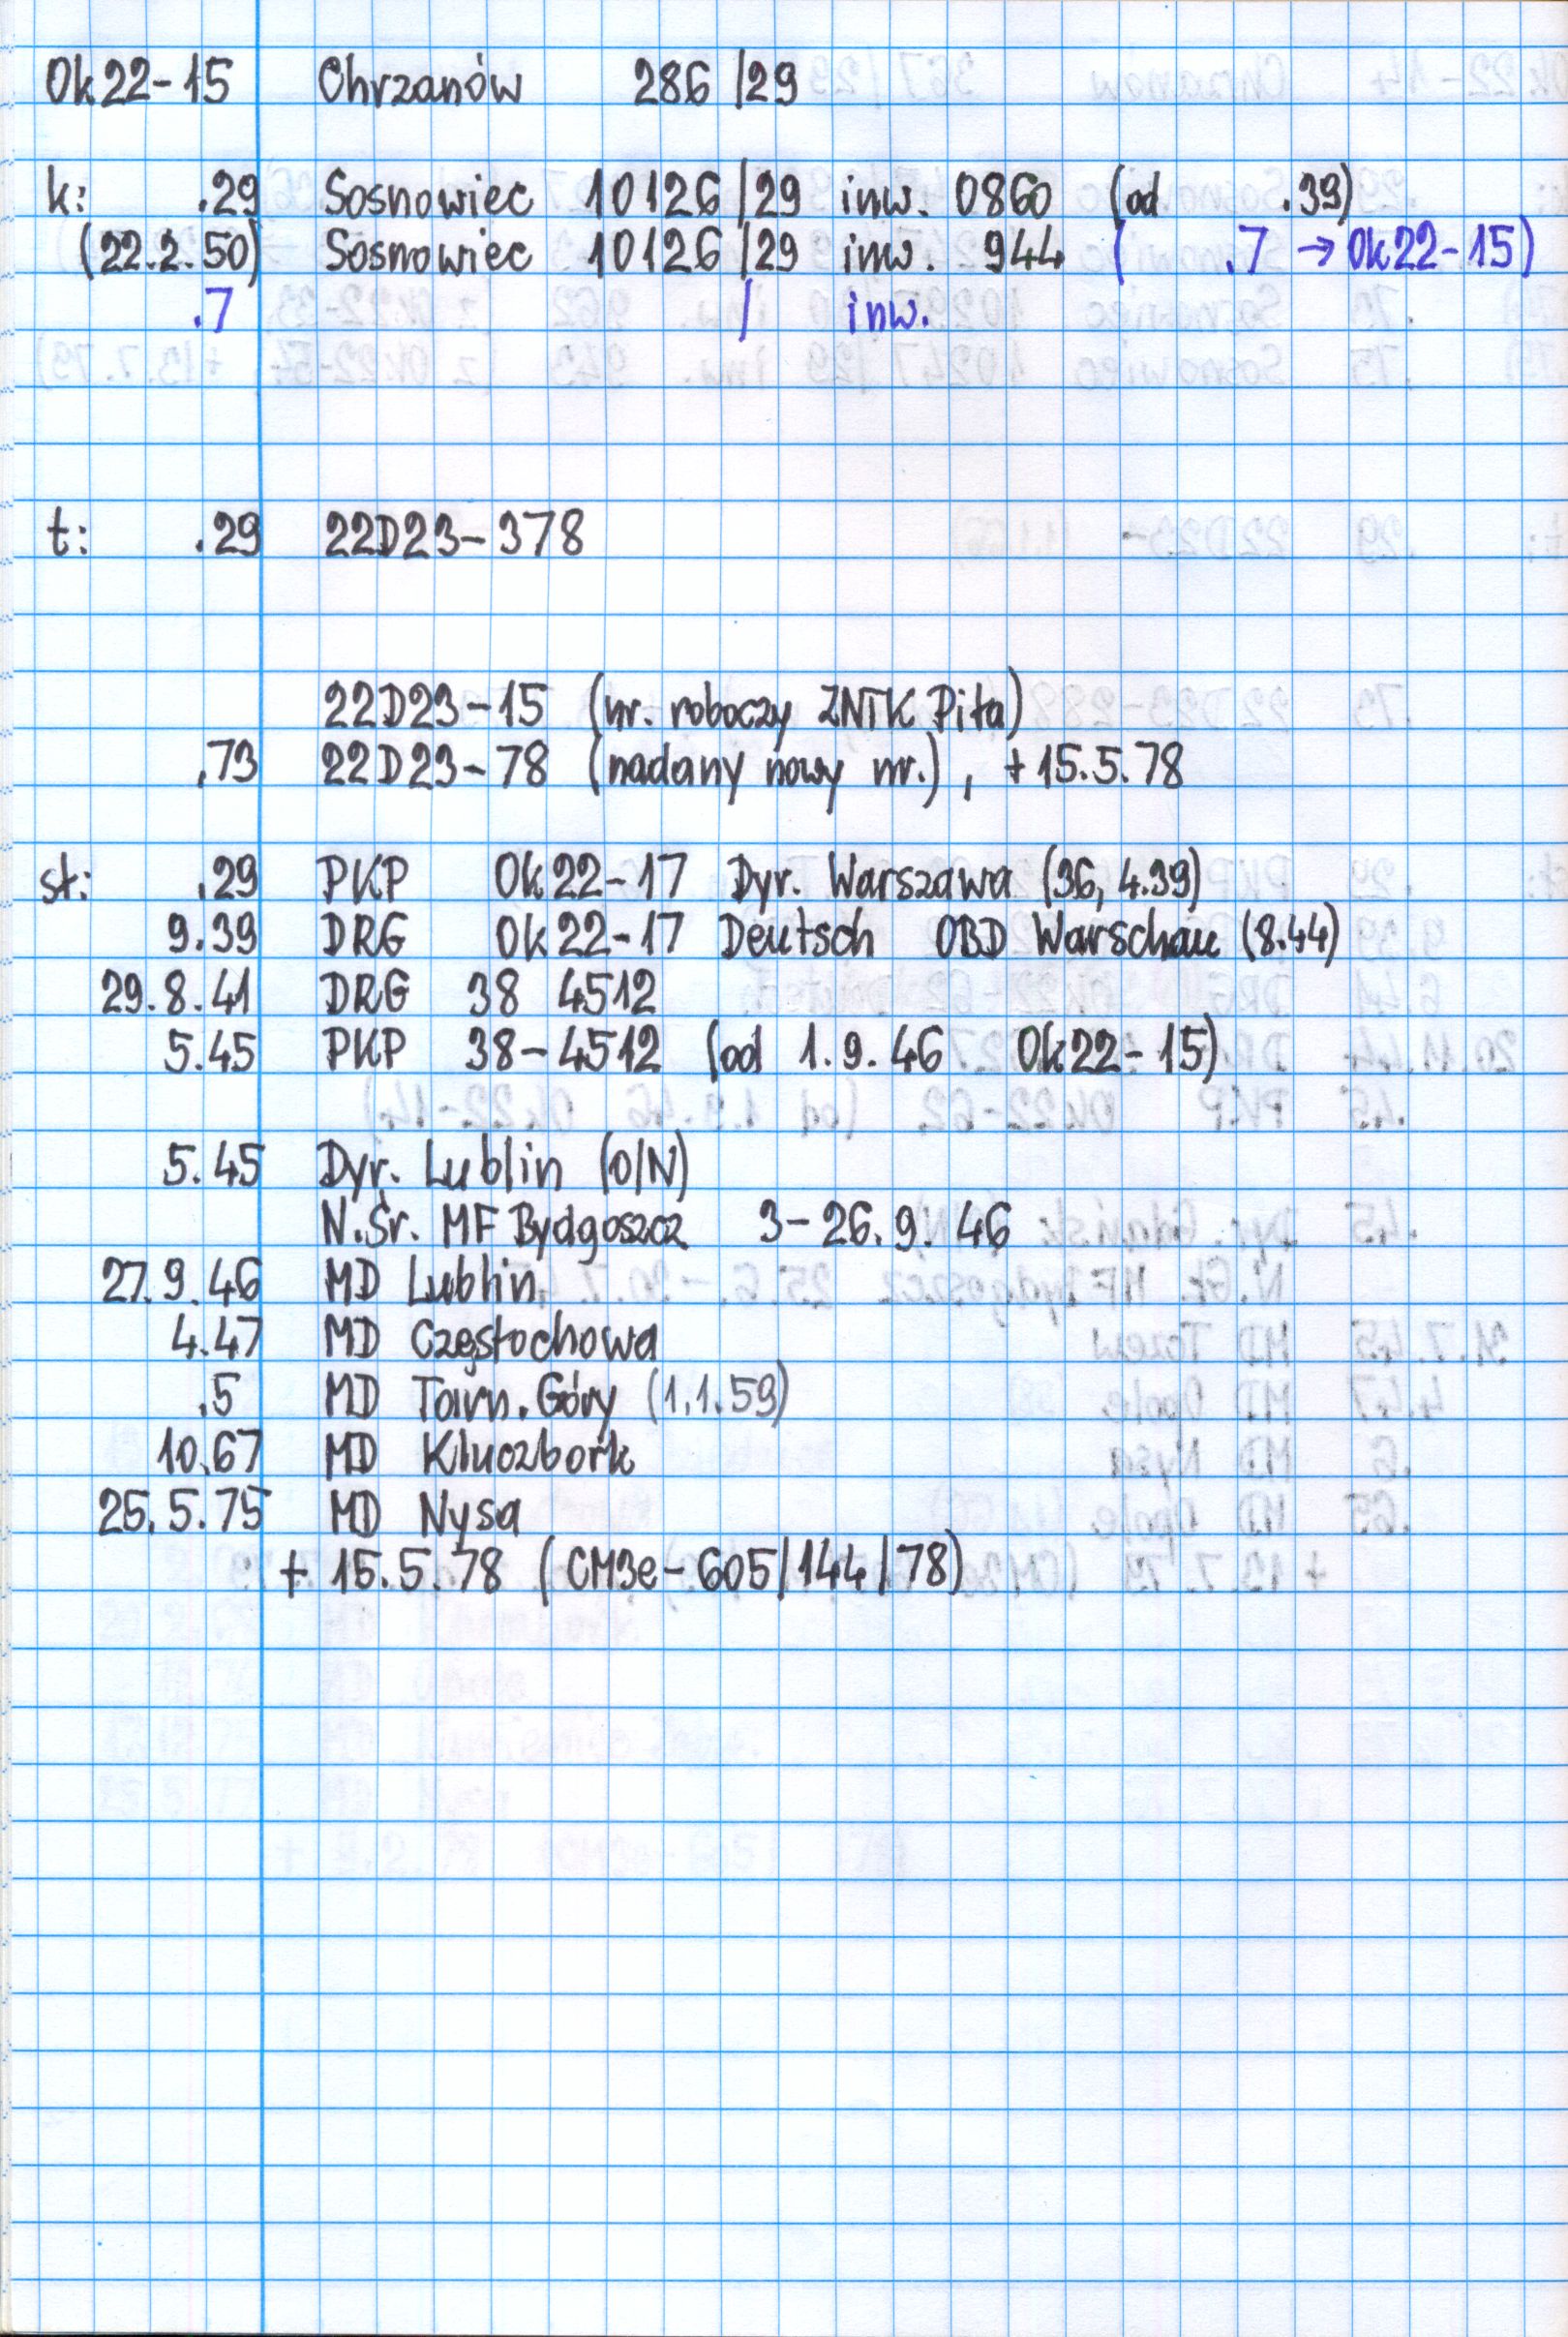 Ok22-15 Chrzanów 286/29
k: .29 Sosnowiec 10126/29 inw. 0860 (od .39)
(22.2.50) Sosnowiec 10126/29 inw. 944 ( .7 → Ok22-15)
.7 / inw.
t: .29 22D23-378
22D23-15 (nr. roboczy ZNTK Piła)
.73 22D23-78 (nadany nowy nr.), + 15.5.78
st: .29 PKP Ok22-17 Dyr. Warszawa (36, 4.39)
9.39 DRG Ok22-17 Deutsch OBD Warschau (8.44)
29.8.41 DRG 38 4512
5.45 PKP 38-4512 (od 1.9.46 Ok22-15)
5.45 Dyr. Lublin (O/N)
N.Śr. MF Bydgoszcz 3-26.9.46
27.9.46 MD Lublin
4.47 MD Częstochowa
.5 MD Tarn. Góry (1.1.59)
10.67 MD Kluczbork
25.5.75 MD Nysa
+ 15.5.78 (CM3e-605/144/78)